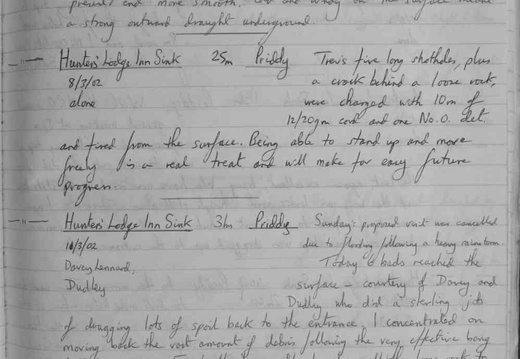 and more smooth.
a strong outward draught underground.
Hunters' Lodge Inn Sink 25m Priddy Trev's five long shotholes, plus
8/3/02 a crack behind a loose rock,
alone were charged with 10m of
12/20gm cord and one No. 0. det.
and fired from the surface. Being able to stand up and move
freely is a real treat and will make for easy future
progress.
Hunters' Lodge Inn Sink 3h Priddy Sunday's proposed visit was cancelled
11/3/02 due to flooding following a heavy rainstorm.
Davey Lennard, Today 6 loads reached the
Dudley surface - courtesy of Davey and
Dudley who did a sterling job
of dragging lots of spoil back to the entrance. I concentrated on
moving back the vast amount of debris following the very effective bang